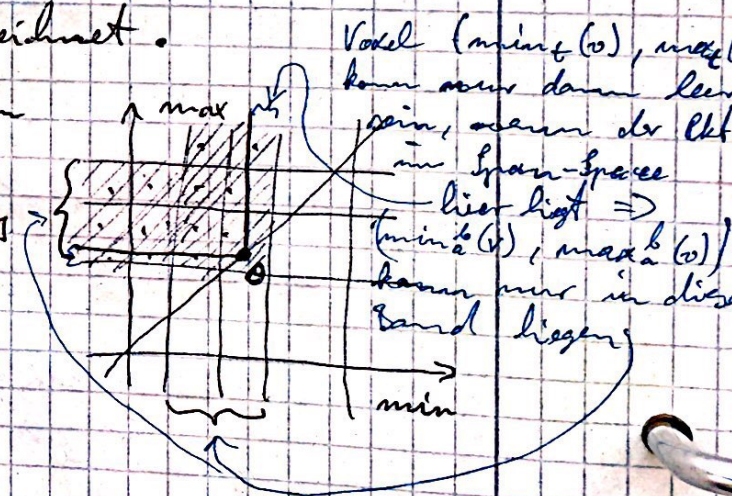 eichnet.
Voxel (min_t(v), max_t(
kann nur dann leer
max
sein, wenn der Pkt
im Span-Space
hier liegt ⇒
(min_a^b(v), max_a^b(v))
kann nur in diese
Band liegen
θ
min